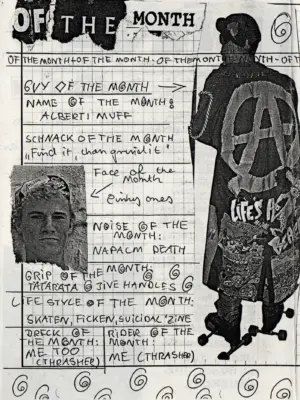 OF THE MONTH
OF THE MONTH • OF THE MONTH • OF THE MONTH • OF THE MONTH • OF T
GUY OF THE MONTH →
NAME OF THE MONTH:
ALBERTI MUFF
SCHNACK OF THE MONTH
"Find it, than grind it"
Face of the
Month
ones
NOISE OF THE
MONTH:
NAPALM DEATH
GRIP OF THE MONTH:
TATARATA JIVE HANDLES
LIFE STYLE OF THE MONTH:
SKATEN, FICKEN, SUICIDAL 'ZINE
DRECK OF
THE MONTH:
ME TOO
(THRASHER)
RIDER OF THE
MONTH:
ME (THRASHER)
A
LIFE'S